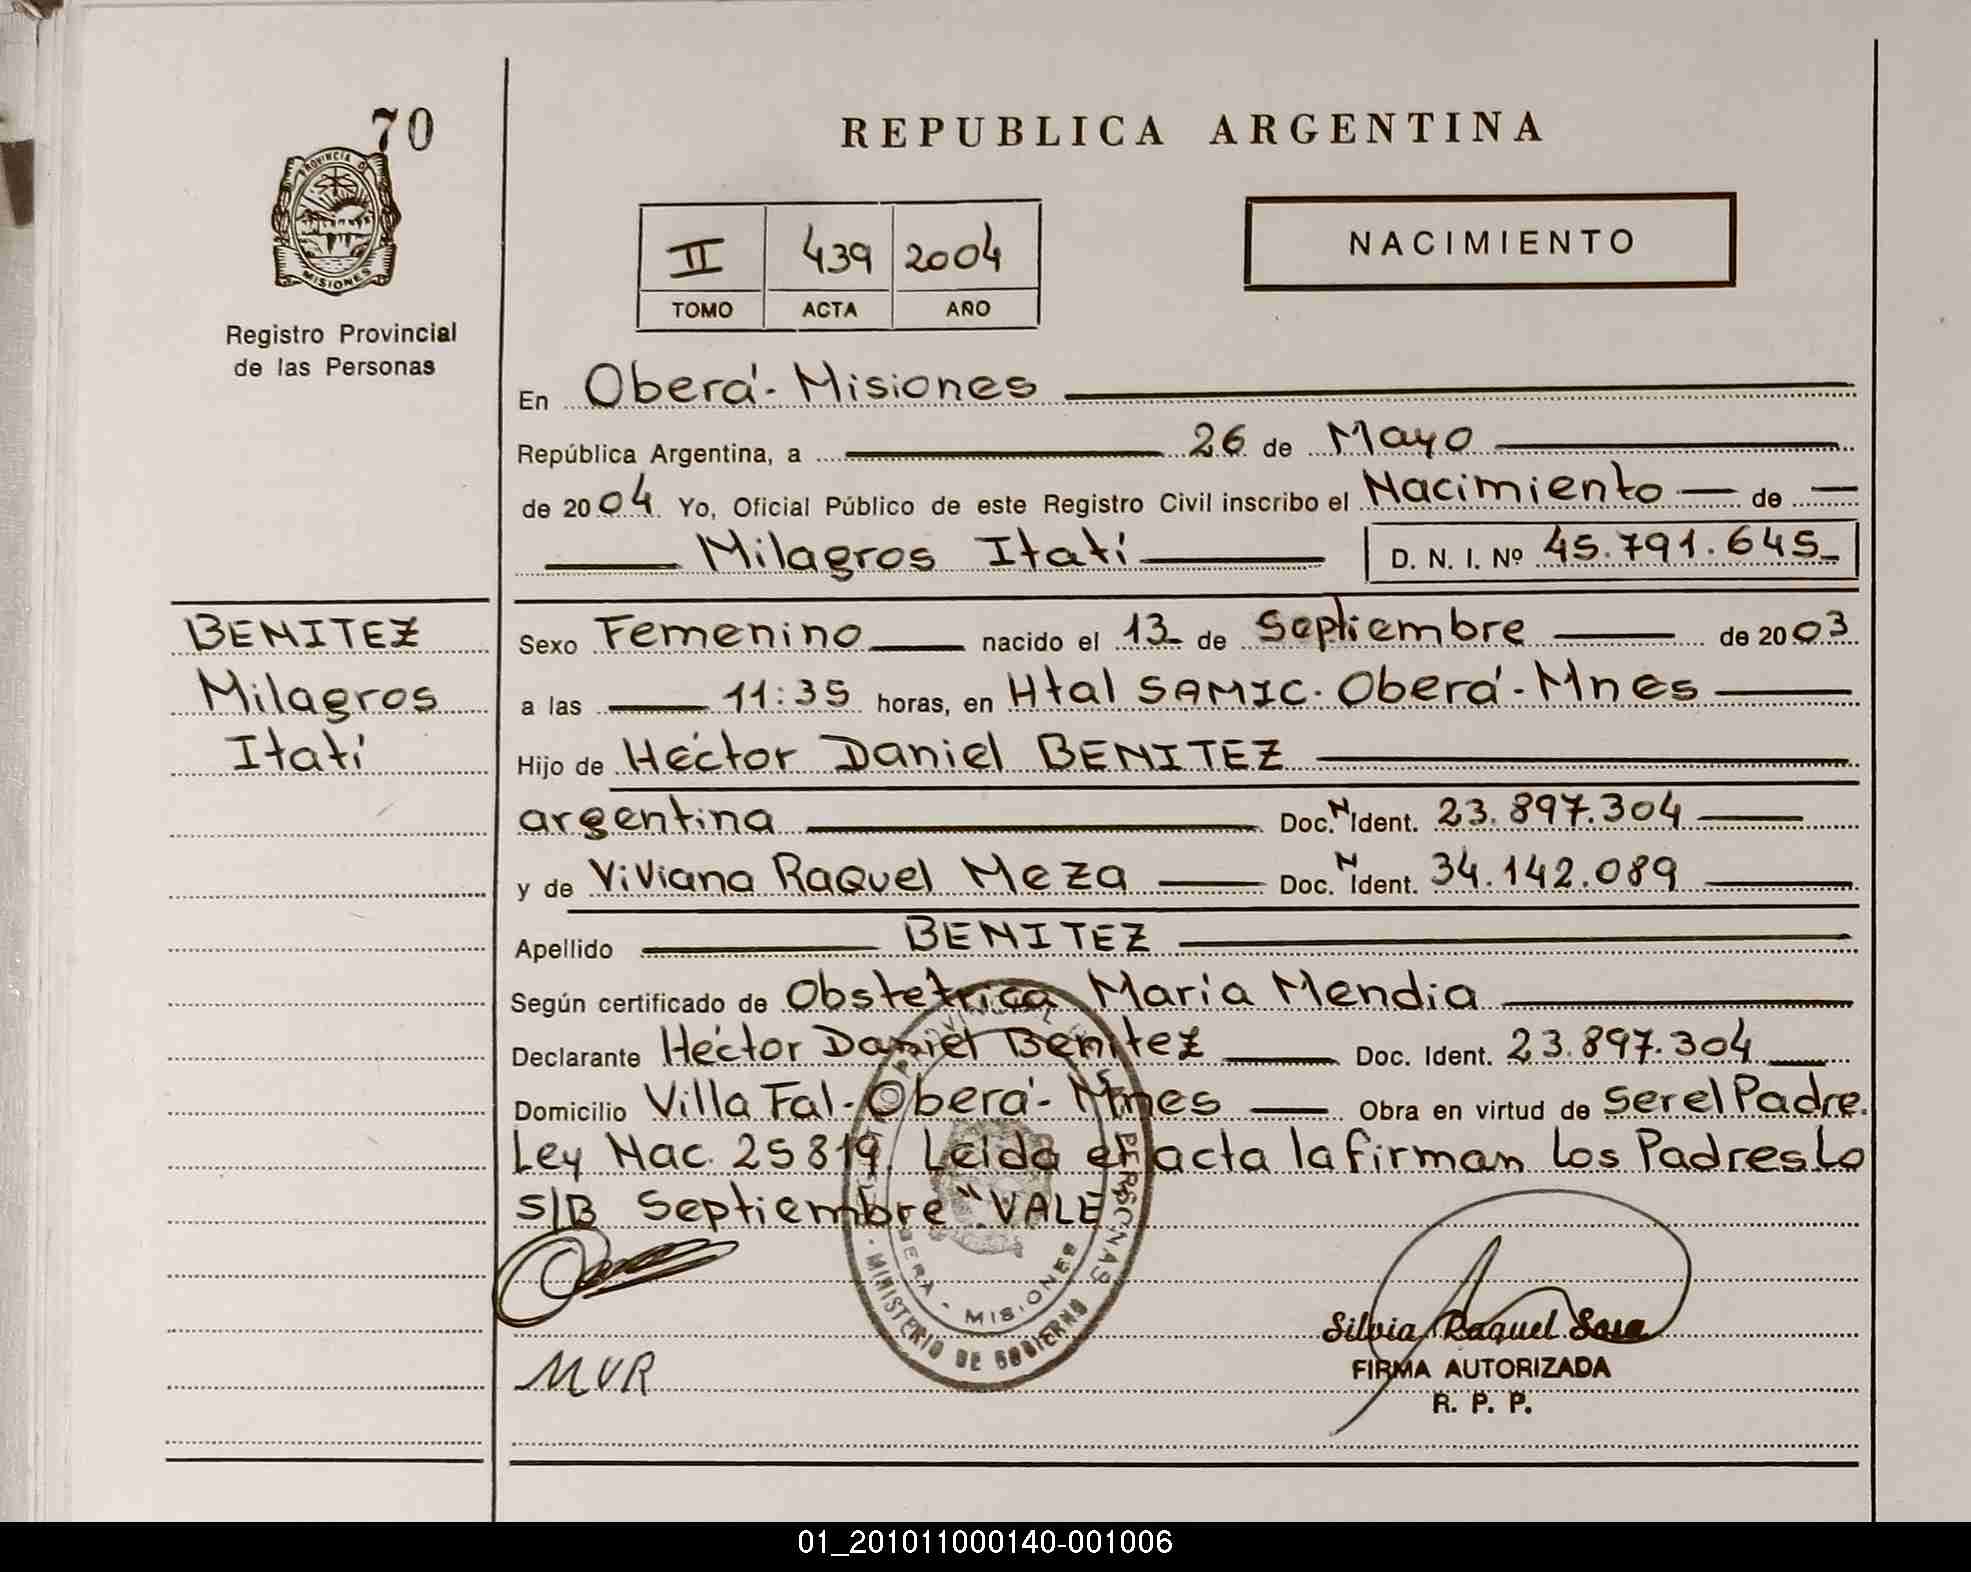 70
PROVINCIA DE
MISIONES
Registro Provincial
de las Personas
REPUBLICA ARGENTINA
II 439 2004
TOMO ACTA AÑO
NACIMIENTO
En Oberá - Misiones
República Argentina, a 26 de Mayo
de 2004 Yo, Oficial Público de este Registro Civil inscribo el Nacimiento de
Milagros Itatí D. N. I. Nº 45.791.645
BENITEZ
Milagros
Itatí
Sexo Femenino nacido el 13 de Septiembre de 2003
a las 11:35 horas, en Htal SAMIC. Oberá - Mnes
Hijo de Héctor Daniel BENITEZ
argentina Doc. N Ident. 23.897.304
y de Viviana Raquel Meza Doc. N Ident. 34.142.089
Apellido BENITEZ
Según certificado de Obstetrica María Mendia
Declarante Héctor Daniel Benítez Doc. Ident. 23.897.304
Domicilio Villa Fal - Oberá - Mnes Obra en virtud de ser el Padre.
Ley Nac. 25819. Leida el acta la firman los Padres Lo
S/B Septiembre "VALE
OBERA - MISIONES
MINISTERIO DE GOBIERNO
MVR
Silvia Raquel Sosa
FIRMA AUTORIZADA
R. P. P.
01_201011000140-001006